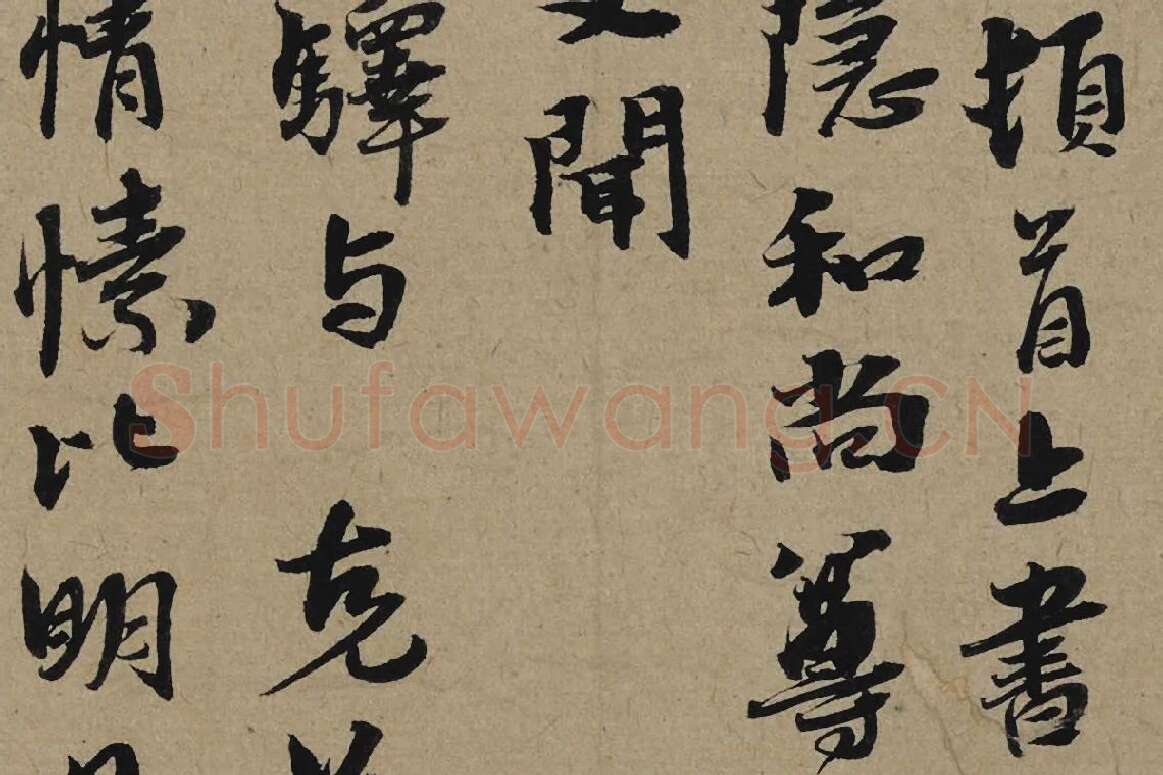 頓首上書
隐和尚尊
聞
驛与克
情愫比明
Shufawang.CN